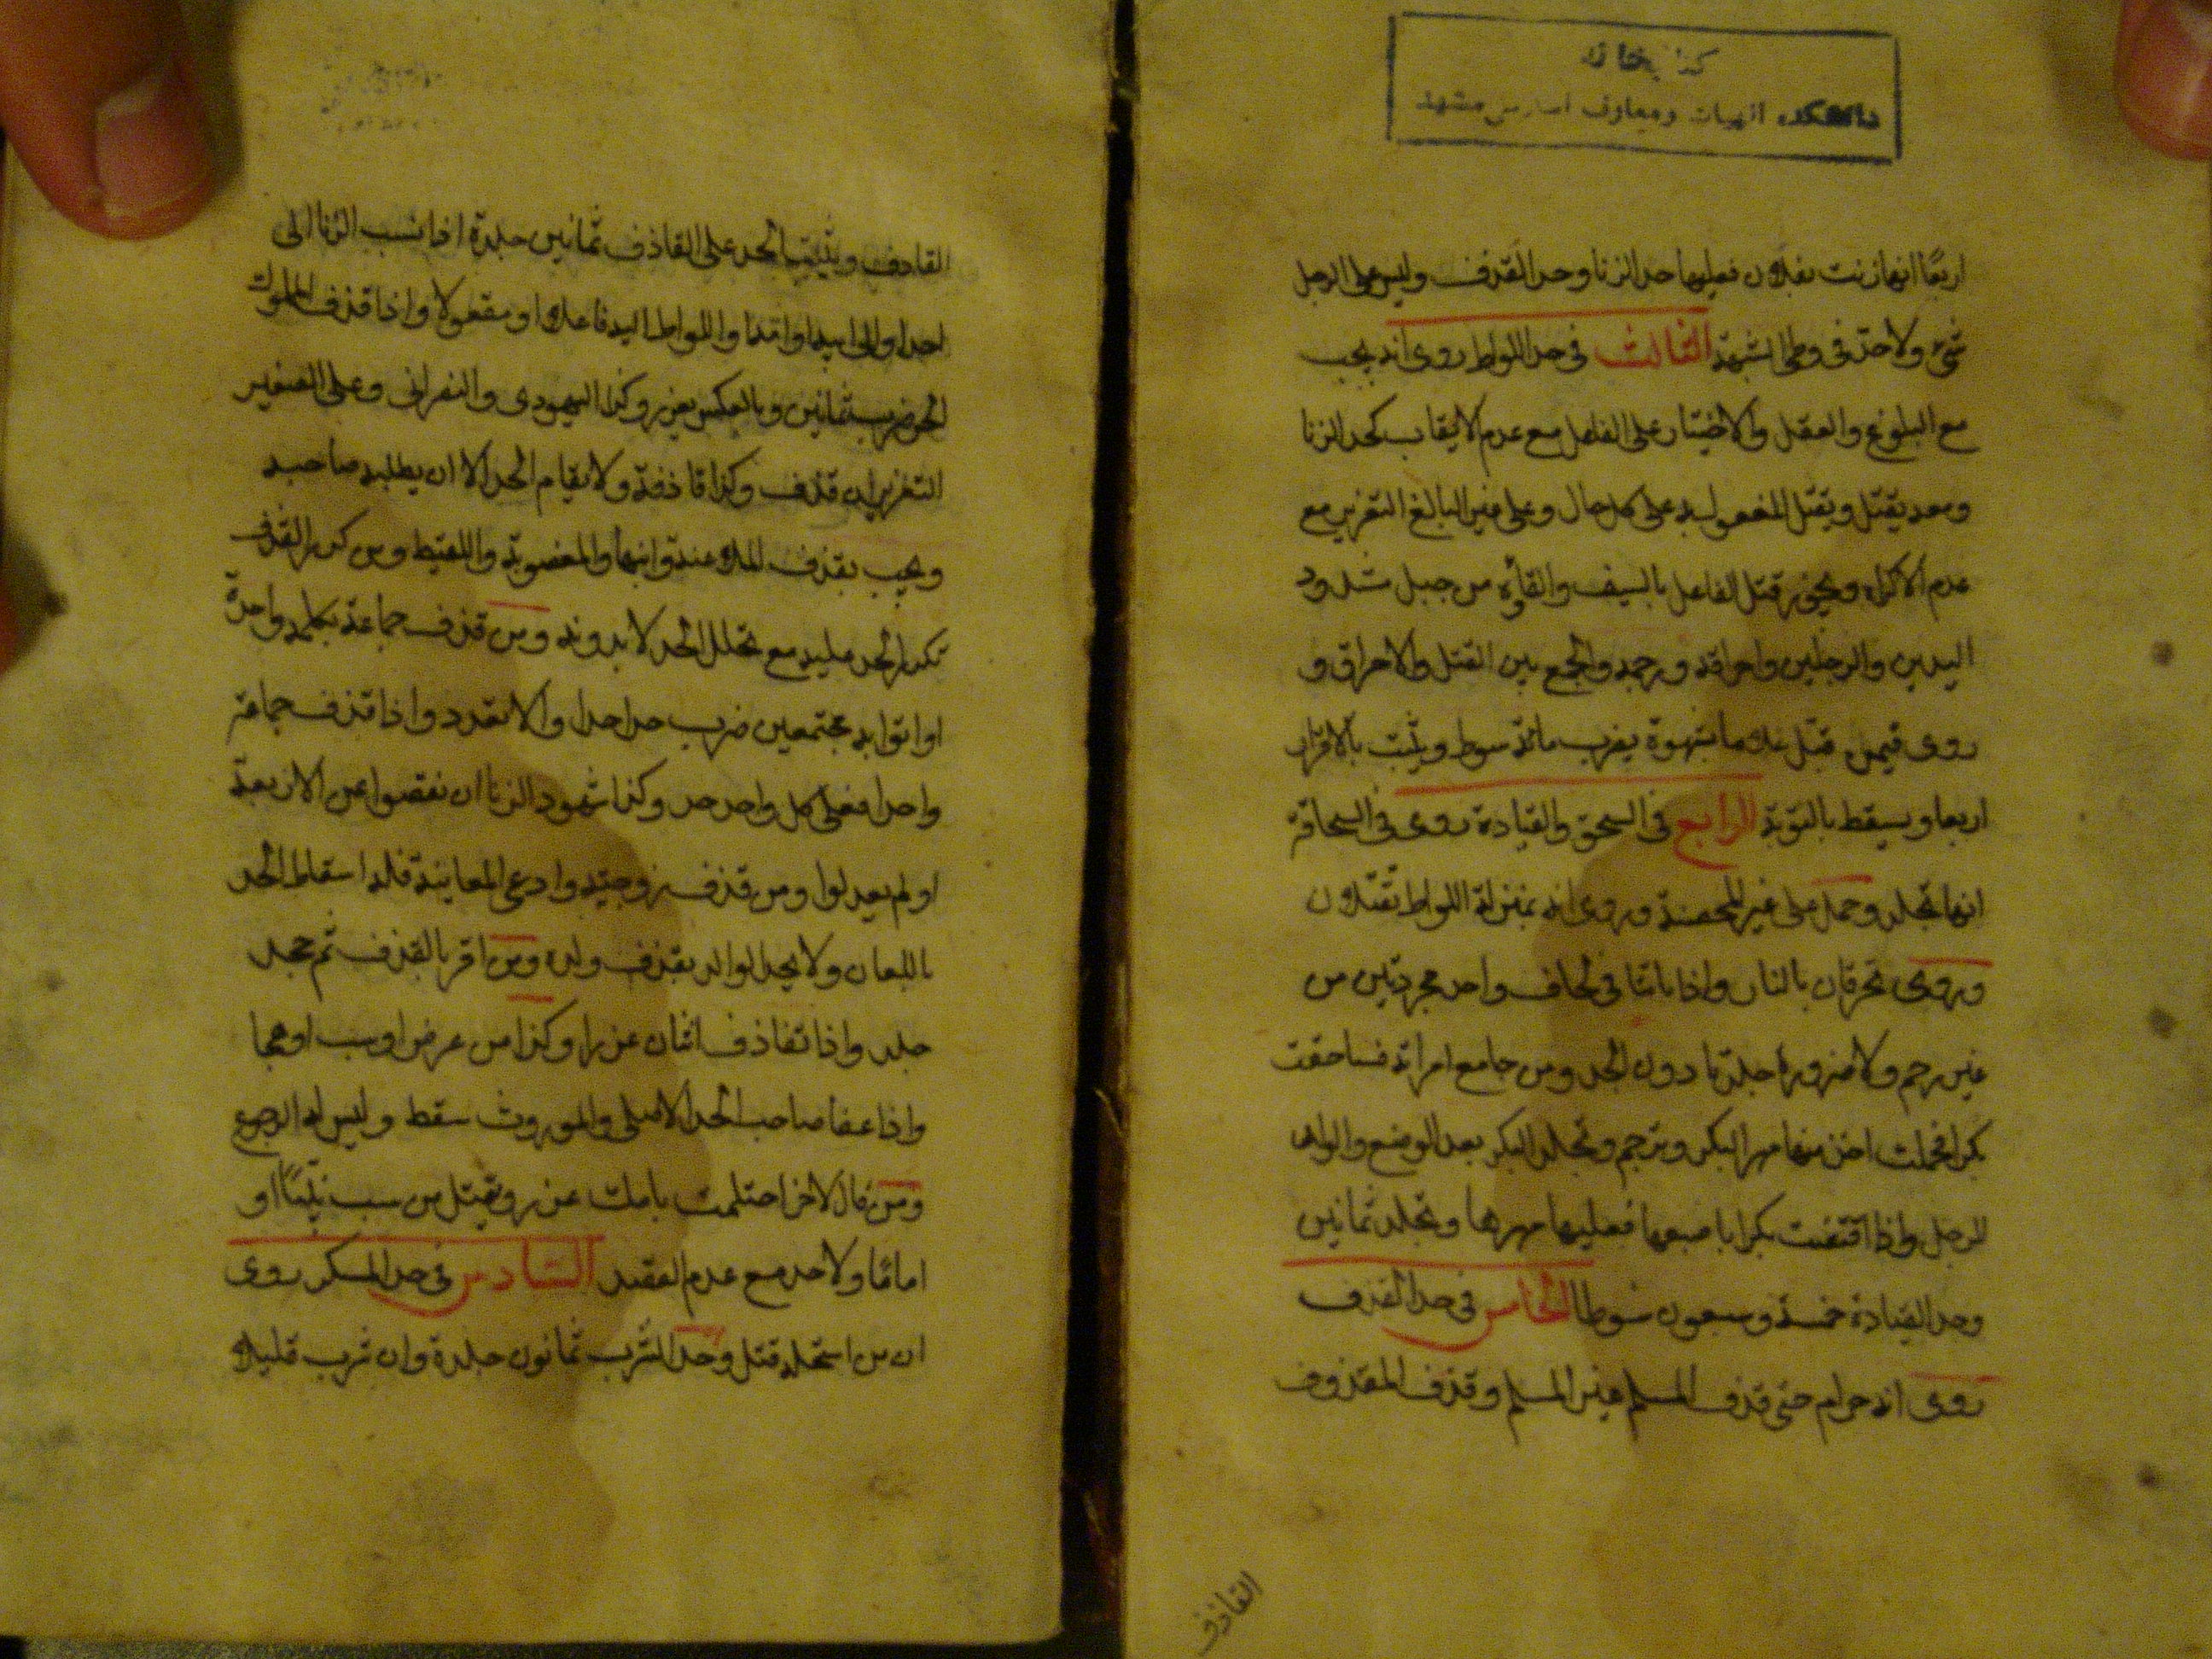 كتابخانه
دانشكده الهيات ومعارف اسلامى مشهد
اربعًا انها زنت بفلان فعليها حد الزنا وحد القذف وليس على الرجل
شىء ولا حد فى وطى الشبهة الثالث فى حد اللواط روى انه يجب
مع البلوغ والعقل والاختيار على الفاعل مع عدم الايقاب كحد الزنا
ومعه يقتل ويقتل المفعول به على كل حال وعلى غير البالغ التعزير مع
عدم الاكراه ويجوز قتل الفاعل بالسيف والقاؤه من جبل مشدود
اليدين والرجلين واحراقه ورجمه والجمع بين القتل والاحراق و
روى فيمن قبل غلاما بشهوة يضرب مائة سوط ويثبت بالاقرار
اربعا ويسقط بالتوبة الرابع فى السحق والقيادة روى فى السحاقة
انها تجلد وحمل على غير المحصنة وروى انه بمنزلة اللواط تقتلان
وروى تحرقان بالنار واذا باتتا فى لحاف واحد مجردتين من
غير رحم ولا ضرورة جلدتا دون الحد ومن جامع امراته فساحقت
بكرا فحملت اخذ منها مهر البكر وترجم وتجلد البكر بعد الوضع والولد
للرجل واذا اقتضت بكرا باصبعها فعليها مهرها وتجلد ثمانين
وحد القيادة خمسة وسبعون سوطا الخامس فى حد القذف
روى انه حرام حتى قذف المسلم غير المسلم وقذف المقذوف
القاذف
القاذف ويثبت الحد على القاذف ثمانين جلدة اذا نسب الزنا الى
احد او الى ابيه او امه او اللواط اليه فاعلا او مفعولا واذا قذف المملوك
الحر ضرب ثمانين وبالعكس يعزر وكذا اليهودى والنصرانى وعلى الصغير
التعزير ان قذف وكذا قاذفة ولا يقام الحد الا ان يطلبه صاحبه
ويجب بقذف الملاعنة وابنها والمغصوبة واللقيط ومن كرر القذف
تكرر الحد عليه مع تخلل الحد لا بدونه ومن قذف جماعة بكلمة واحدة
او اتوا به مجتمعين ضرب حدا حدا والا تعدد واذا قذف جماعة
واحدا فعلى كل واحد حد وكذا شهود الزنا ان نقصوا عن الاربعة
او لم يعدلوا ومن قذف زوجته وادعى المعاينة فله اسقاط الحد
باللعان ولا يحد الوالد بقذف ولده ومن اقر بالقذف ثم جحد
جلد واذا تقاذف اثنان عزرا وكذا من عرض او سب او هجا
واذا عفا صاحب الحد الاصلى والموروث سقط وليس له الرجوع
ومن قال لاخر احتلمت بامك عزر ويقتل من سب نبيًّا او
امامًا ولا حد مع عدم العقد السادس فى حد المسكر روى
ان من استحله قتل وحد الشرب ثمانون جلدة وان شرب قليلا